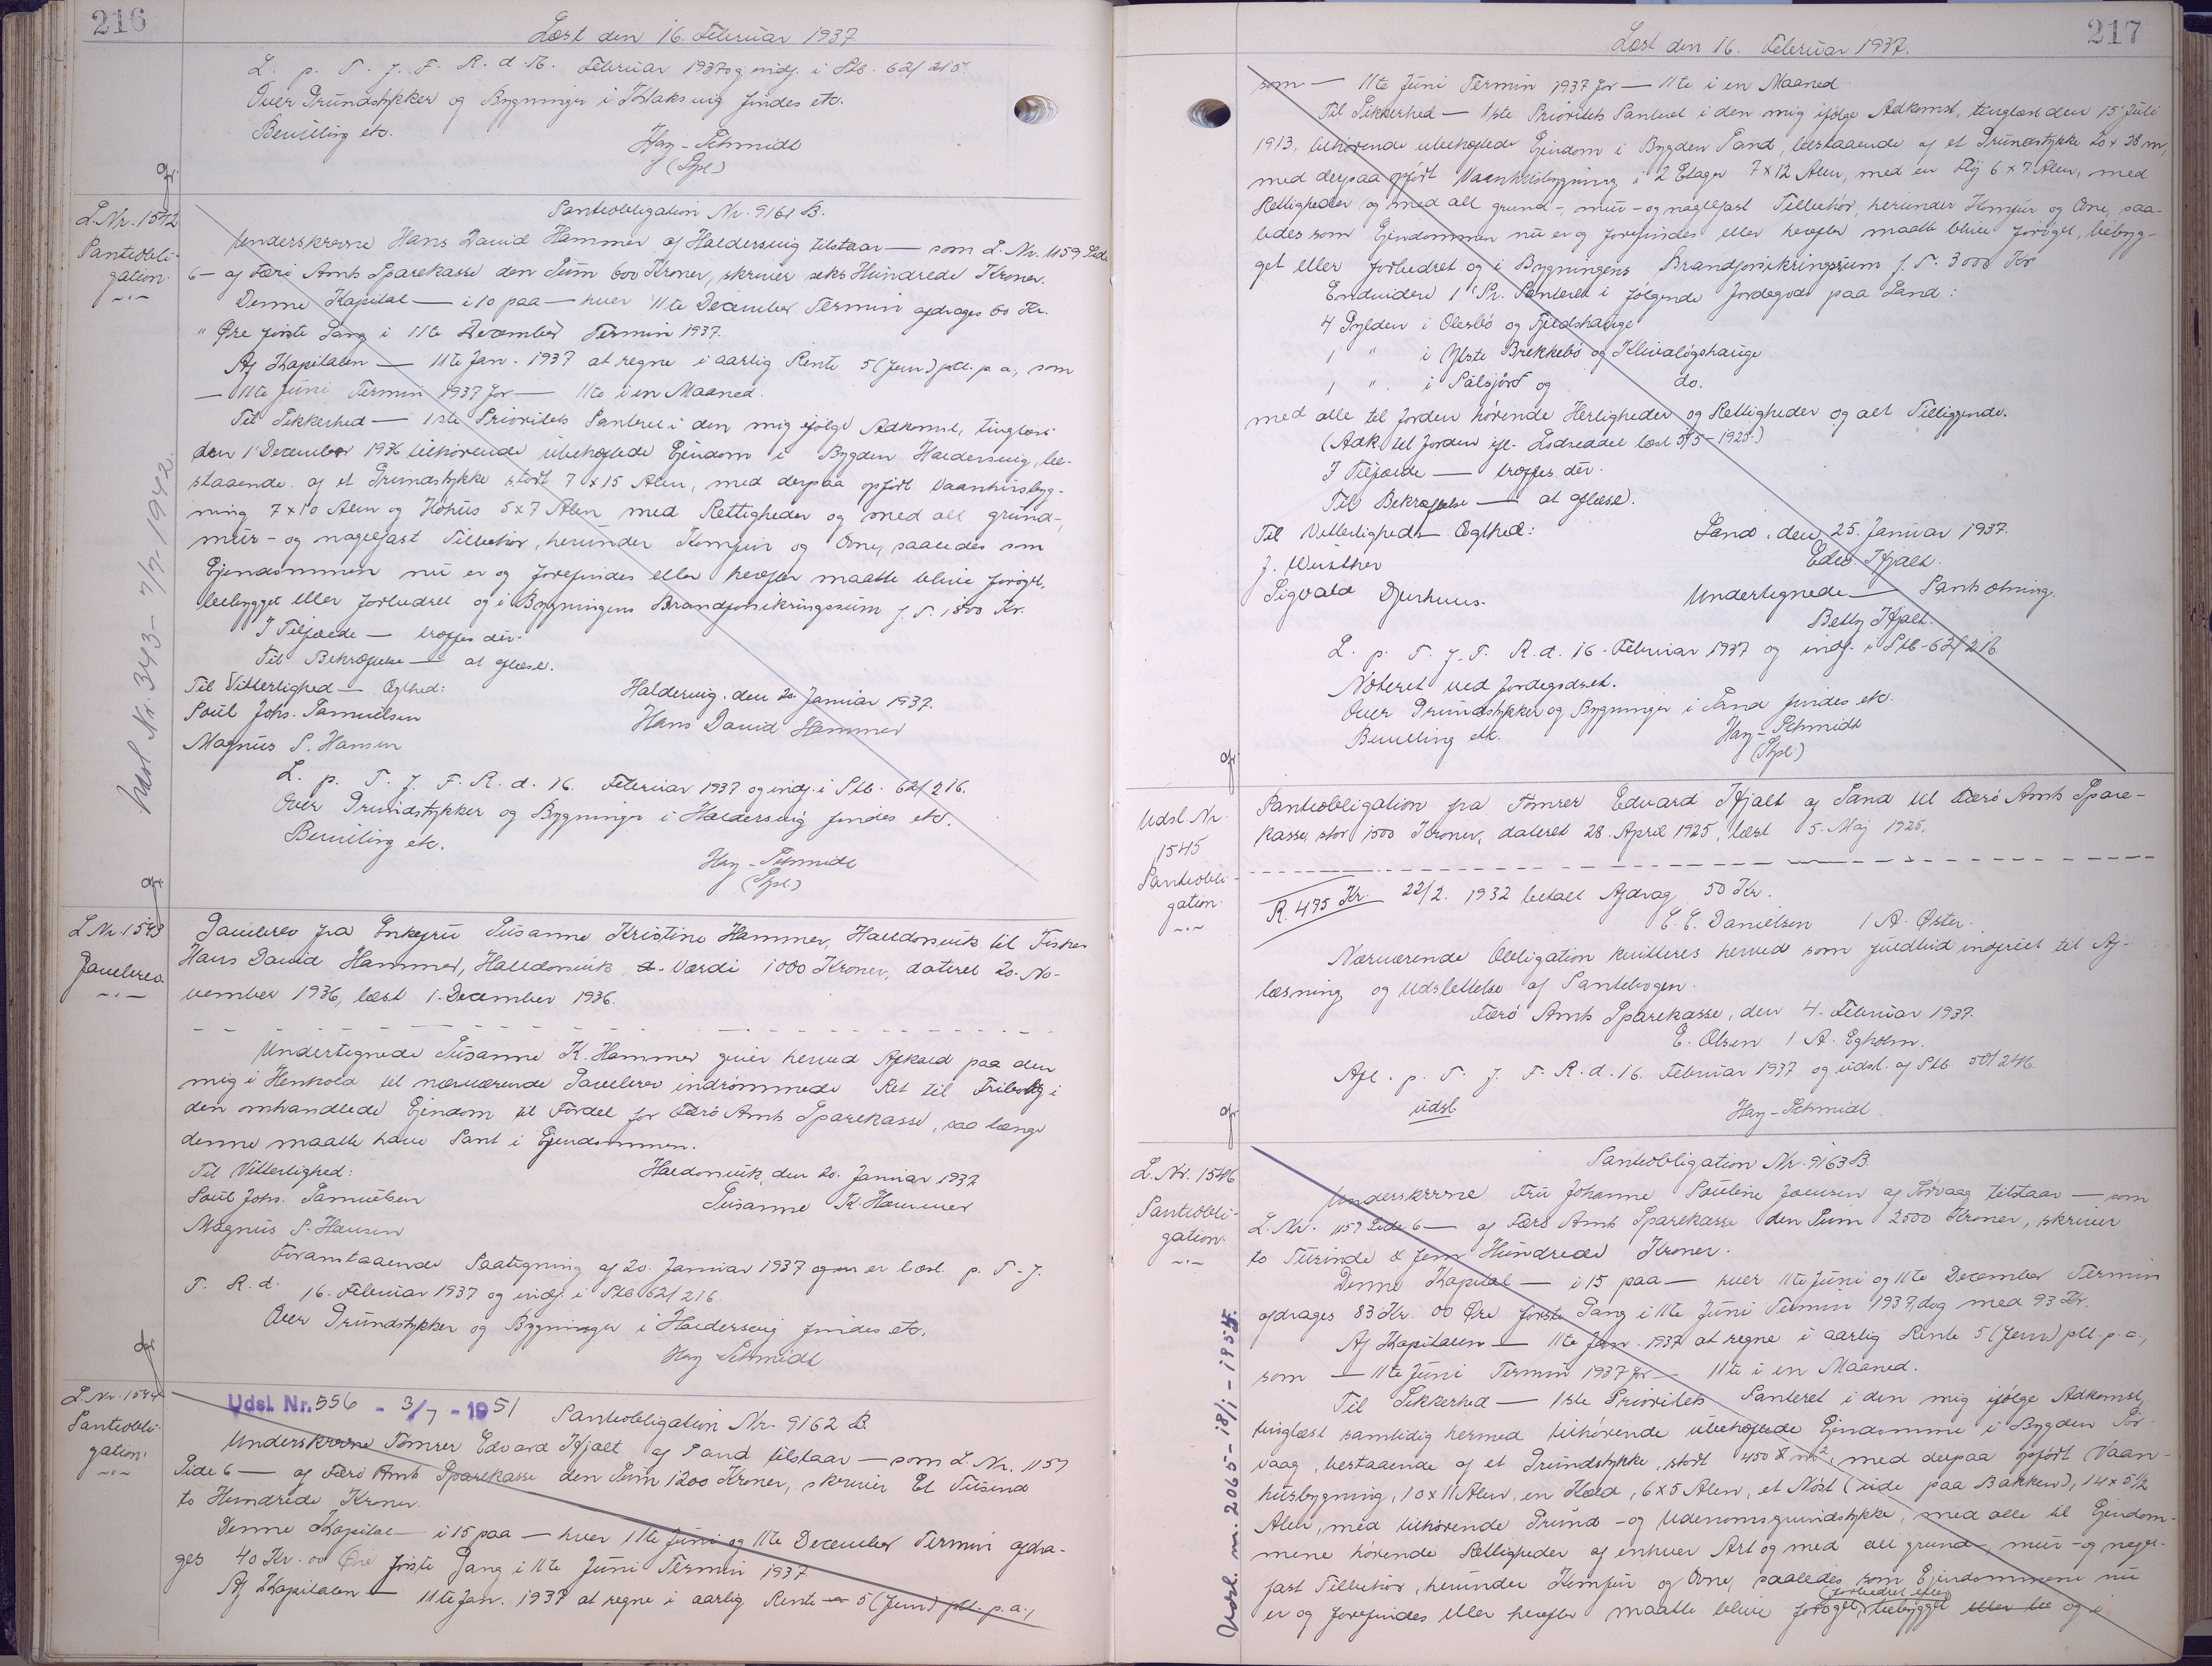 216
Læst den 16. Februar 1937
L. p. T. f. F. R. d. 16. Februar 1937 og indf. i Ptb. 62/215.
Over Grundstykker og Bygninger i Klaksvig findes etc.
Bevilling etc.
Hay-Schmidt
(Gpl.)
L. Nr. 1542
Panteobli-
gation.
Udsl. Nr. 343 - 7/7 - 1942.
Panteobligation Nr. 9161 B.
Underskrevne Hans David Hammer af Haldersvig tilstaar — som L. Nr. 1159 Side
6 — af Færø Amts Sparekasse den Sum 600 Kroner, skriver seks Hundrede Kroner.
Denne Kapital — i 10 paa — hver 11te December Termin afdrages 60 Kr.
" Øre første Gang i 11te December Termin 1937.
Af Kapitalen — 11te Jan. 1937 at regne i aarlig Rente 5 (fem) pct. p. a., som
— 11te Juni Termin 1937 for — 11te i en Maaned.
Til Sikkerhed — 1ste Prioritets Panteret i den mig ifølge Adkomst, tinglæst
den 1' December 1936 tilhørende ubehæftede Ejendom i Bygden Haldersvig, be-
staaende af et Grundstykke stort 7 x 15 Alen, med derpaa opført Vaanhusbyg-
ning 7 x 10 Alen og Høhus 5 x 7 Alen med Rettigheder og med alt grund-,
mur- og nagelfast Tilbehør, herunder Komfur og Ovne, saaledes som
Ejendommen nu er og forefindes eller herefter maatte blive forøget,
bebygget eller forbedret og i Bygningens Brandforsikringssum f. T. 1500 Kr.
I Tilfælde — træffes dér.
Til Bekræftelse — at aflæse.
Til Vitterlighed — Ægthed:
Haldersvig, den 20. Januar 1937.
Poul Johs. Samuelsen
Hans David Hammer
Magnus P. Hansen
L. p. T. f. F. R. d. 16. Februar 1937 og indf. i Ptb. 62/216.
Over Grundstykker og Bygninger i Haldersvig findes etc.
Bevilling etc.
Hay-Schmidt
(Gpl.)
L. Nr. 1543
Gavebrev.
Gavebrev fra Enkefru Susanne Kristine Hammer, Haldorsvik til Fisker
Hans David Hammer, Haldorsvik, Værdi 1000 Kroner, dateret 20. No-
vember 1936, læst 1. December 1936.
Undertegnede Susanne K. Hammer giver herved Afkald paa den
mig i Henhold til nærværende Gavebrev indrømmede Ret til Fribolig i
den omhandlede Ejendom til Fordel for Færø Amts Sparekasse, saa længe
denne maatte have Pant i Ejendommen.
Til Vitterlighed:
Haldorsvik, den 20. Januar 1937
Poul Johs. Samuelsen
Susanne K. Hammer
Magnus P. Hansen
Foranstaaende Paategning af 20. Januar 1937 er læst p. T. f.
F. R. d. 16. Februar 1937 og indf. i Ptb 62/216.
Over Grundstykker og Bygninger i Haldersvig findes etc.
Hay Schmidt
L. Nr. 1544
Panteobli-
gation.
Udsl. Nr. 556 - 3/7 - 1951
Panteobligation Nr. 9162 B.
Underskrevne Tømrer Edvard Hjalt af Sand tilstaar — som L. Nr. 1157
Side 6 — af Færø Amts Sparekasse den Sum 1200 Kroner, skriver Et Tusind
to Hundrede Kroner.
Denne Kapital — i 15 paa — hver 11te Juni og 11te December Termin afdra-
ges 40 Kr. 00 Øre første Gang i 11te Juni Termin 1937
Af Kapitalen — 11te Jan. 1937 at regne i aarlig Rente 5 (fem) pct. p. a.,
217
Læst den 16. Februar 1937.
som — 11te Juni Termin 1937 for — 11te i en Maaned.
Til Sikkerhed — 1ste Prioritets Panteret i den mig ifølge Adkomst, tinglæst den 15' Juli
1913, tilhørende ubehæftede Ejendom i Bygden Sand, bestaaende af et Grundstykke 20 x 38 m,
med derpaa opført Vaanhusbygning i 2 Etager 7 x 12 Alen, med en Fløj 6 x 7 Alen, med
Rettigheder og med alt grund-, mur- og nagelfast Tilbehør, herunder Komfur og Ovne, saa-
ledes som Ejendommen nu er og forefindes eller herefter maatte blive forøget, bebyg-
get eller forbedret og i Bygningens Brandforsikringssum f. T. 3000 Kr.
Endvidere 1' Pr. Panteret i følgende Jordegods paa Sand:
4 Gylden i Olesbø og Fjeldshauge
1 " i Yste Brekkebø og Klivaløgshauge
1 " i Sålsjørd og do.
med alle til Jorden hørende Herligheder og Rettigheder og alt Tilliggende.
(Adk. til Jorden ifl. Lodseddel læst 5/5-1925.)
I Tilfælde — træffes dér.
Til Bekræftelse — at aflæse.
Til Vitterligheds Ægthed:
Sand, den 25. Januar 1937.
J. Winther
Edv. Hjalt.
Sigvald Djurhuus.
Undertegnede — Pantsætning.
Betty Hjalt.
L. p. T. f. F. R. d. 16. Februar 1937 og indf. i Ptb. 62/216.
Noteret ved Jordegodset.
Over Grundstykker og Bygninger i Sand findes etc.
Bevilling etc.
Hay-Schmidt
(Gpl.)
Udsl. Nr.
1545
Panteobli-
gation.
Panteobligation fra Tømrer Edvard Hjalt af Sand til Færø Amts Spare-
kasse, stor 1500 Kroner, dateret 28. April 1925, læst 5. Maj 1925.
R. 475 Kr. 22/2. 1932 betalt Afdrag 50 Kr.
E. E. Danielsen / A. Øster.
Nærværende Obligation kvitteres herved som fuldtud indfriet til Af-
læsning og Udslettelse af Pantebogen.
Færø Amts Sparekasse, den 4. Februar 1937.
E. Olsen / A. Egholm.
Afl. p. T. f. F. R. d. 16. Februar 1937 og udsl. af Ptb 50/246.
udsl.
Hay-Schmidt
L. Nr. 1546
Panteobli-
gation.
Udsl. nr. 2065 - 18/1 - 1955.
Panteobligation Nr. 9163 B.
Underskrevne Fru Johanne Pouline Joensen af Sørvaag tilstaar — som
L. Nr. 1157 Side 6 — af Færø Amts Sparekasse den Sum 2500 Kroner, skriver
to Tusinde & fem Hundrede Kroner.
Denne Kapital — i 15 paa — hver 11te Juni og 11te December Termin
afdrages 83 Kr. 00 Øre første Gang i 11te Juni Termin 1937, dog med 93 Kr.
Af Kapitalen — 11te Jan. 1937 at regne i aarlig Rente 5 (fem) pct. p. a.,
som — 11te Juni Termin 1937 for — 11te i en Maaned.
Til Sikkerhed — 1ste Prioritets Panteret i den mig ifølge Adkomst,
tinglæst samtidig hermed tilhørende ubehæftede Ejendomme i Bygden Sør-
vaag, bestaaende af et Grundstykke, stort 450 m², med derpaa opført Vaan-
husbygning, 10 x 11 Alen, en Hæld, 6 x 5 Alen, et Nøst (ude paa Bakken), 14 x 5 1/2
Alen, med tilhørende Grund- og Udenomsgrundstykke, med alle til Ejendom-
mene hørende Rettigheder af enhver Art og med alt grund-, mur- og nagel-
fast Tilbehør, herunder Komfur og Ovne, saaledes som Ejendommene nu
(forbedret eller)
er og forefindes eller herefter maatte blive forøget, bebygget eller be og i